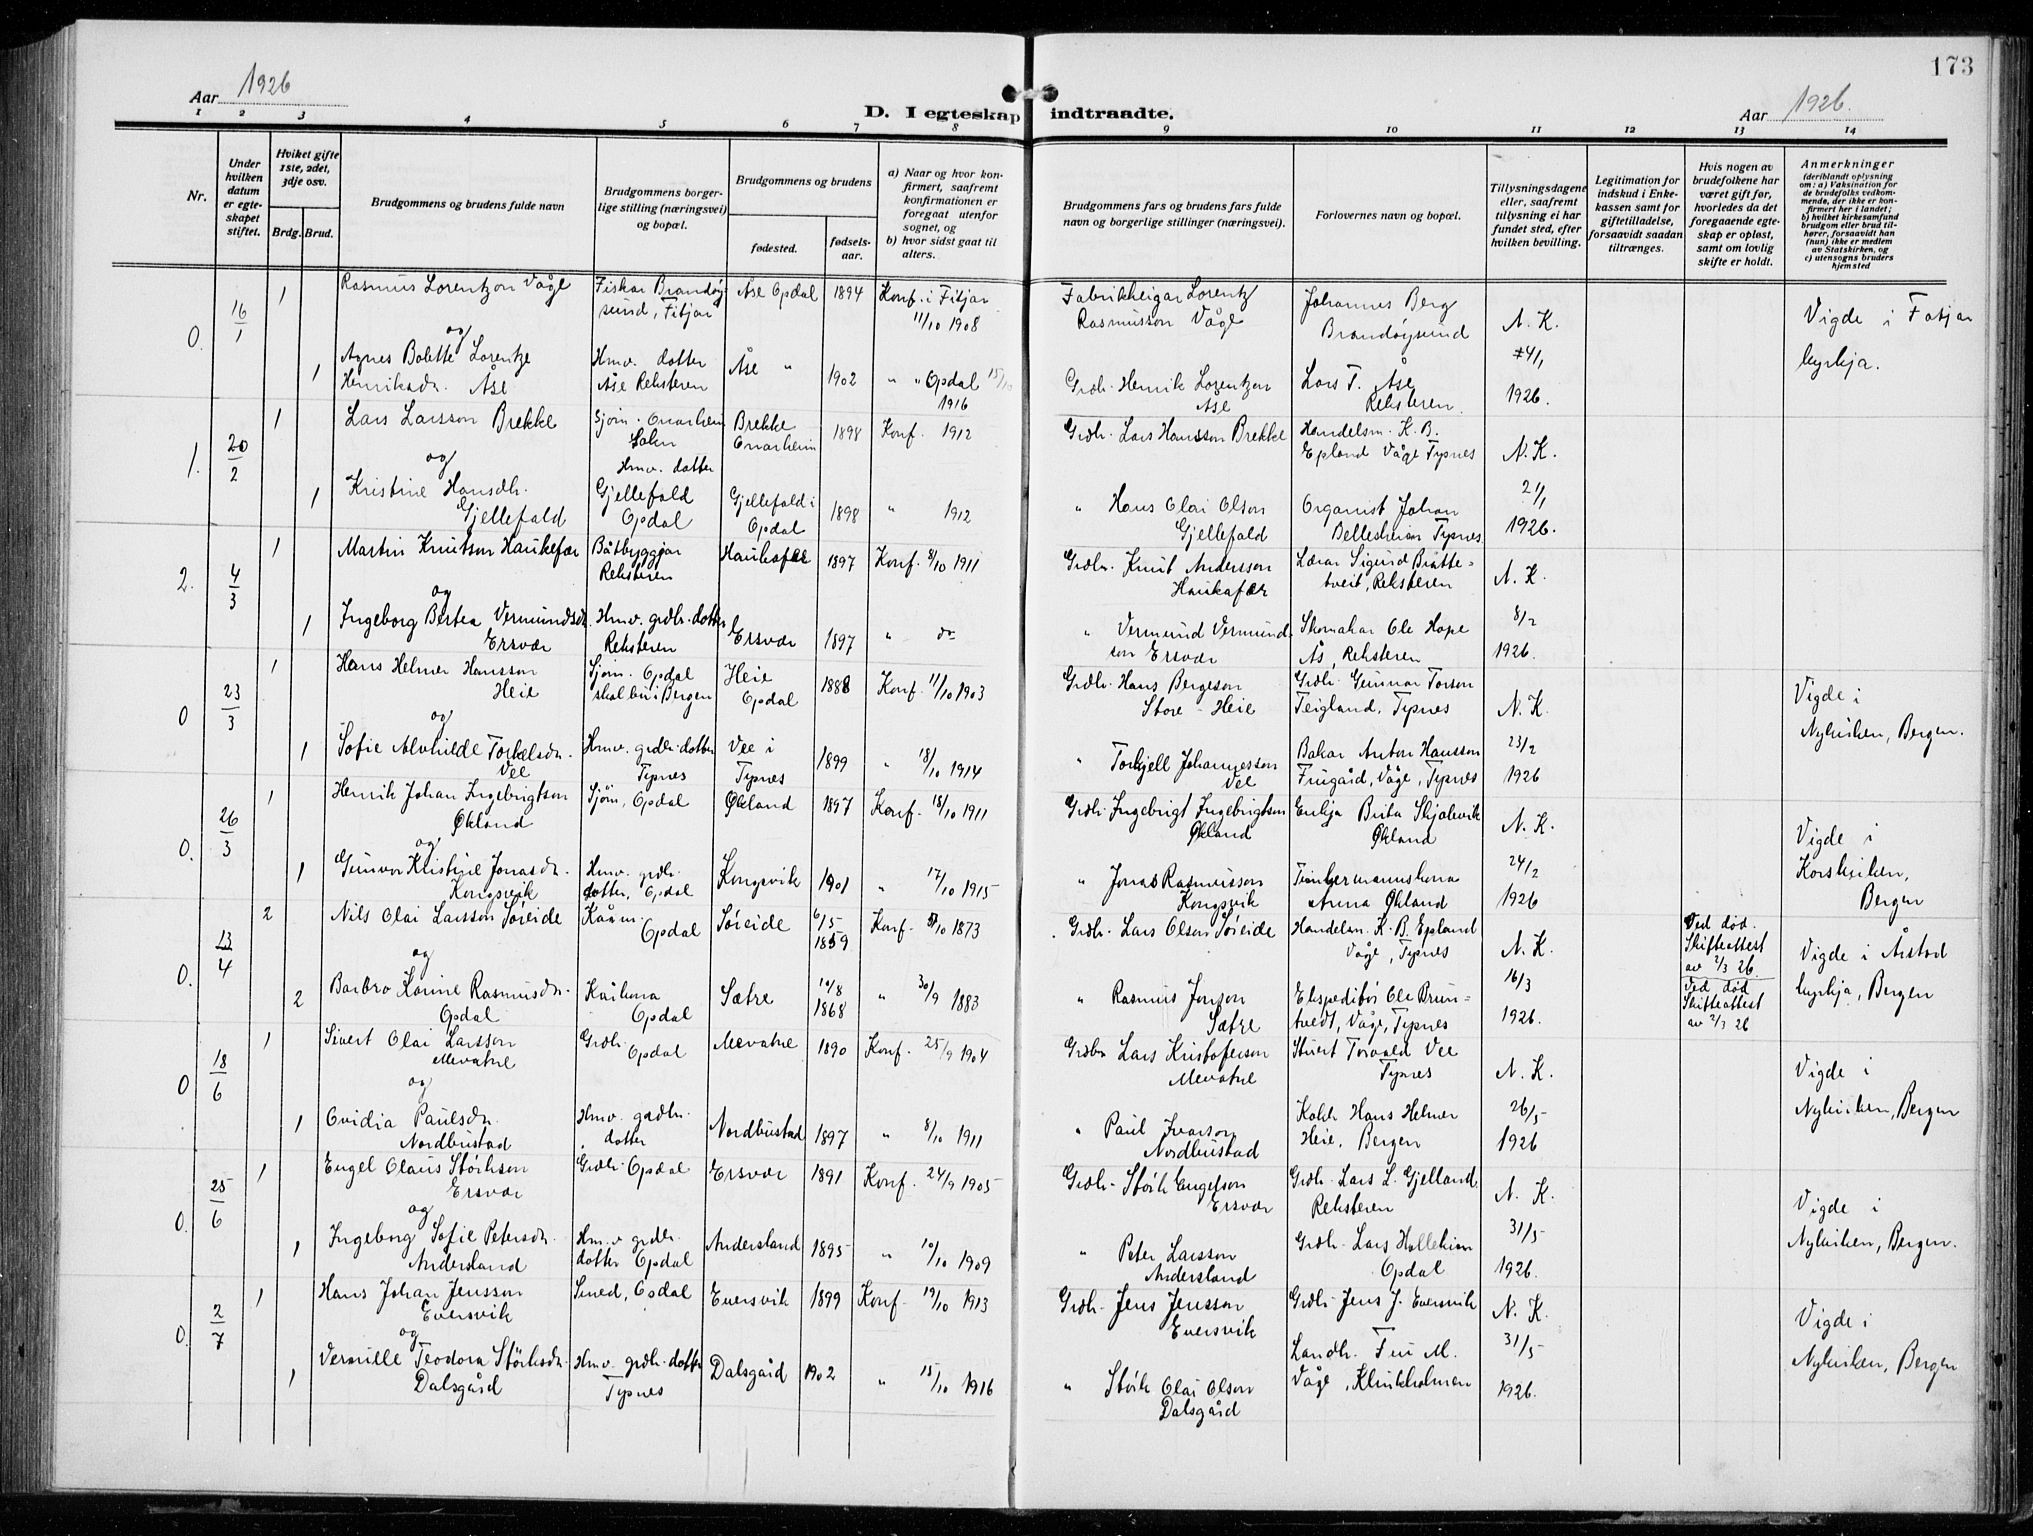 173
Aar 1926
D. I egteskap indtraadte.
Aar 1926.
1 2 3 4 5 6 7 8 9 10 11 12 13 14
Nr.
Under
hvilken
datum
er egte-
skapet
stiftet.
Hviket gifte
1ste, 2det,
3dje osv.
Brdg. Brud.
Brudgommens og brudens fulde navn
Brudgommens borger-
lige stilling (næringsvei)
og bopæl.
Brudgommens og brudens
fødested.
fødsels-
aar.
a) Naar og hvor kon-
firmert, saafremt
konfirmationen er
foregaat utenfor
sognet, og
b) hvor sidst gaat til
alters.
Brudgommens fars og brudens fars fulde
navn og borgerlige stillinger (næringsvei).
Forlovernes navn og bopæl.
Tillysningsdagene
eller, saafremt
tillysning ei har
fundet sted, efter
hvilken bevilling.
Legitimation for
indskud i Enke-
kassen samt for
giftetilladelse,
forsaavidt saadan
tiltrænges.
Hvis nogen av
brudefolkene har
været gift før,
hvorledes da det
foregaaende egte-
skap er opløst,
samt om lovlig
skifte er holdt.
Anmerkninger
(deriblandt oplysning
om: a) Vaksination for
de brudefolks vedkom-
mende, der ikke er kon-
firmert her i landet;
b) hvilket kirkesamfund
brudgom eller brud til-
hører, forsaavidt han
(hun) ikke er medlem
av Statskirken, og
c) utensogns bruders
hjemsted
0. 16/1 1 Rasmus Lorentzon Våge
Fiskar Brandøy
sund, Fitjar
Åse Opdal 1894 Konf. i Fitjar
11/10 1908
Fabrikkeigar Lorentz
Rasmusson Våge
Johannes Berg
Brandøysund
N. K.
Vigde i Fitjar
kyrkja.
og
1 Agnes Bolette Lorentze
Henriksdr. Åse
Hmv. dotter
Åse Reksteren
Åse " 1902 " " Opdal 15/10
1916
Grdb. Henrik Lorentzon
Åse
Lars T. Åse
Reksteren.
1926.
1. 20/2 1 Lars Larsson Brekke
Sjøm. Onarheim
Sokn
Brekke
Onarheim
1898 Konf. 1912
Grdbr. Lars Hansson Brekke
Handelsm. K. B.
Epland Våge Tysnes
N. K.
og
1 Kristine Hansdtr.
Gjellefald
Hmv. dotter
Gjellefald
Opdal
Gjellefald i
Opdal
1898 " 1912
" Hans Olai Olson
Gjellefald
Organist Johan
Bellesheim Tysnes
1926.
2. 4/3 1 Martin Knutson Haukefær
Båtbyggjar
Reksteren
Haukafær 1897 Konf. 8/10 1911
Grdbr. Knut Andersson
Haukafær
Lærar Sigurd Bratte-
tveit, Reksteren
N. K.
og
1 Ingeborg Bertea Vermundsdr.
Ersvær
Hmv. grdbr. dotter
Reksteren
Ersvær 1897 " do
" Vermund Vermund-
son Ersvær
Skomakar Ole Hope
Ås, Reksteren
8/2
1926.
0 23/3 1 Hans Helmer Hansson
Heie
Sjøm. Opdal
skal bu i Bergen
Heie
Opdal
1888 Konf. 11/10 1903
Grdbr. Hans Bergeson
Store - Heie
Grdbr. Gunnar Torson
Teigland, Tysnes
N. K.
Vigde i
Nykirken, Bergen.
og
1 Sofie Alvhilde Torkelsdr.
Vee
Hmv. grdbr. dotter
Tysnes
Vee i
Tysnes
1899 " 18/10 1914
" Torkjell Johannesson
Vee
Bakar Anton Hansson
Frugård, Våge, Tysnes
23/2
1926
0. 26/3 1 Henrik Johan Ingebrigtson
Økland
Sjøm, Opdal
Økland 1897 Konf. 18/10 1911
Grdbr. Ingebrigt Ingebrigtson
Økland
Enkja Brita Skjelevik
Økland
N. K.
Vigde i
Korskirken,
Bergen
og
1 Gunvor Kristine Jonasdr.
Kongsvik
Hmv. grdbr.
dotter, Opdal
Kongsvik 1901 " 17/10 1915
" Jonas Rasmusson
Kongsvik
Timbermannskona
Anna Økland
24/2
1926
0. 13/4 2 Nils Olai Larsson Søreide
Kårm.
Opdal
Søreide 6/5
1859
Konf. 1873
Grdbr. Lars Olson Søreide
Handelsm. K. B. Epland
Våge, Tysnes
N. K.
Ved død.
Skifteattest
av 2/3 26
Vigde i Årstad
kyrkja, Bergen
og
2 Barbro Karine Rasmusdr.
Opdal
Kårkona
Opdal
Sætre 10/8
1868
" 30/9 1883
" Rasmus Jonson
Sætre
Ekspeditør Ole Brun-
tveit, Våge, Tysnes
16/3
1926.
Ved død
Skifteattest
av 2/3 26
0 18/6 1 Sivert Olai Larsson
Mevatne
Grdbr.
Opdal
Mevatne 1890 Konf. 25/9 1904
Grdbr Lars Kristoferson
Mevatne
Stuert Torvald Vee
Tysnes
N. K.
Vigde i
Nykirken, Bergen
og
1 Ovidia Paulsdr.
Nordbustad
Hmv. grdbr.
dotter
Nordbustad 1897 " 8/10 1911
" Paul Ivarson
Nordbustad
Kokk Hans Helmer
Heie, Bergen
26/5
1926
0. 25/6 1 Engel Olaus Størkson
Ersvær
Grdbr. Opdal
Ersvær 1891 Konf. 24/9 1905
Grdbr. Størk Engelson
Ersvær
Grdbr. Lars L. Gjelland
Reksteren
N. K.
Vigde i
Nykirken, Bergen.
og
1 Ingeborg Sofie Petersdr.
Andersland
Hmv grdbr.
dotter Opdal
Andersland 1895 " 10/10 1909
" Peter Larsson
Andersland
Grdbr. Lars Hollekim
Opdal
31/5
1926.
0. 2/7 1 Hans Johan Jensson
Eversvik
Smed, Opdal
Eversvik 1899 Konf. 19/10 1913
Grdbr. Jens Jensson
Eversvik
Grdbr. Jens J. Eversvik
N. K.
Vigde i
Nykirken, Bergen
og
1 Vermille Teodora Størksdr.
Dalsgård
Hmv. grdbr. dotter
Tysnes
Dalsgård 1902 " 15/10 1916
" Størk Olai Olson
Dalsgård
Landh. M.
Våge, Klinkholmen
31/5
1926.